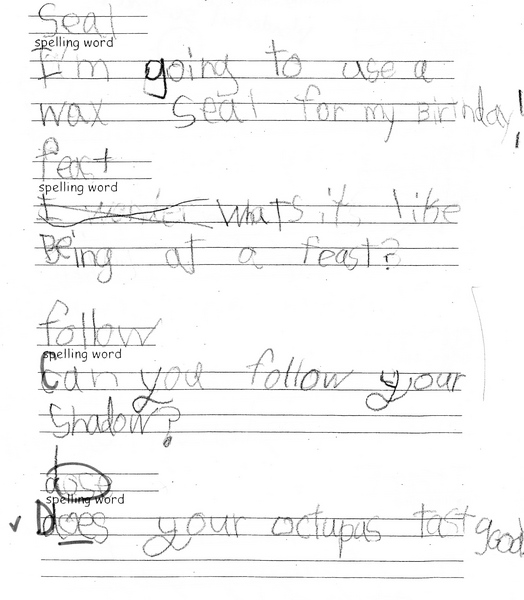 Seal
spelling word
I'm going to use a
wax seal for my Birthday!
feast
spelling word
What's it like
Being at a feast?
follow
spelling word
Can you follow your
Shadow?
dose
spelling word
Does your octupas tast good